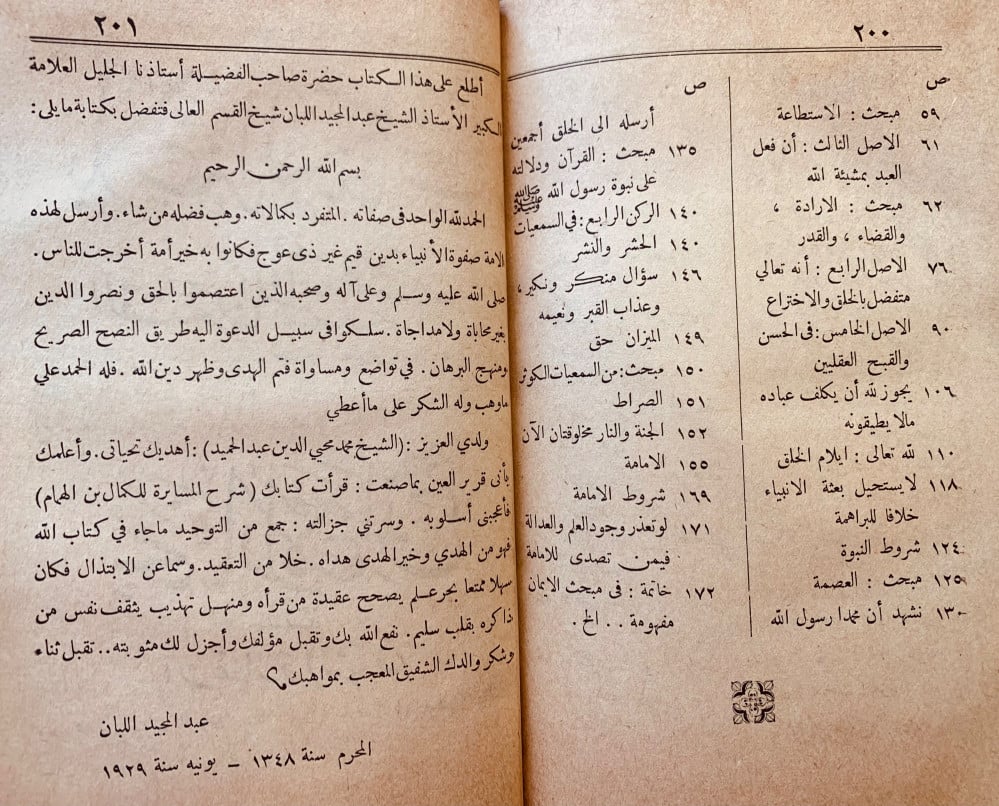 ٢٠٠
ص
٥٩ مبحث : الاستطاعة
٦١ الاصل الثالث : أن فعل
العبد بمشيئة الله
٦٢ مبحث : الارادة ،
والقضاء ، والقدر
٧٦ الاصل الرابع : أنه تعالي
متفضل بالخلق والاختراع
٩٠ الاصل الخامس : فى الحسن
والقبح العقليين
١٠٦ يجوز لله أن يكلف عباده
مالا يطيقونه
١١٠ لله تعالى : ايلام الخلق
١١٨ لا يستحيل بعثة الانبياء
خلافا للبراهمة
١٢٤ شروط النبوة
١٢٥ مبحث : العصمة
١٣٠ نشهد أن محمدا رسول الله
ص
أرسله الى الخلق أجمعين
١٣٥ مبحث : القرآن ودلالته
على نبوة رسول الله ﷺ
١٤٠ الركن الرابع : فى السمعيات
١٤٠ الحشر والنشر
١٤٦ سؤال منكر ونكير ،
وعذاب القبر ونعيمه
١٤٩ الميزان حق
١٥٠ مبحث : من السمعيات الكوثر
١٥١ الصراط
١٥٢ الجنة والنار مخلوقتان الآن
١٥٥ الامامة
١٦٩ شروط الامامة
١٧١ لو تعذر وجود العلم والعدالة
فيمن تصدى للامامة
١٧٢ خاتمة : فى مبحث الايمان
مفهومة . . الخ .
٢٠١
أطلع على هذا الكتاب حضرة صاحب الفضيلة أستاذنا الجليل العلامة
الكبير الأستاذ الشيخ عبد المجيد اللبان شيخ القسم العالى فتفضل بكتابة مايلى :
بسم الله الرحمن الرحيم
الحمد لله الواحد فى صفاته . المتفرد بكمالاته . وهب فضله من شاء . وأرسل لهذه
الامة صفوة الأنبياء بدين قيم غير ذى عوج فكانوا به خير أمة أخرجت للناس .
صلى الله عليه وسلم وعلى آله وصحبه الذين اعتصموا بالحق ونصروا الدين
بغير محاباة ولا مداجاة . سلكوا فى سبيل الدعوة اليه طريق النصح الصريح
ومنهج البرهان . في تواضع ومساواة فتم الهدى وظهر دين الله . فله الحمد علي
ماوهب وله الشكر على ما أعطي
ولدي العزيز : (الشيخ محمد محيي الدين عبد الحميد) : أهديك تحياتى . وأعلمك
بأنى قرير العين بما صنعت : قرأت كتابك (شرح المسايرة للكمال بن الهمام)
فأعجبنى أسلوبه . وسرتني جزالته : جمع من التوحيد ماجاء في كتاب الله
فهو من الهدي وخير الهدى هداه . خلا من التعقيد . وسما عن الابتذال فكان
سهلا ممتعا بحر علم يصحح عقيدة من قرأه ومنهل تهذيب يثقف نفس من
ذاكره بقلب سليم . نفع الله بك وتقبل مؤلفك وأجزل لك مثوبته . . تقبل ثناء
وشكر والدك الشفيق المعجب بمواهبك ؟
عبد المجيد اللبان
المحرم سنة ١٣٤٨ – يونيه سنة ١٩٢٩